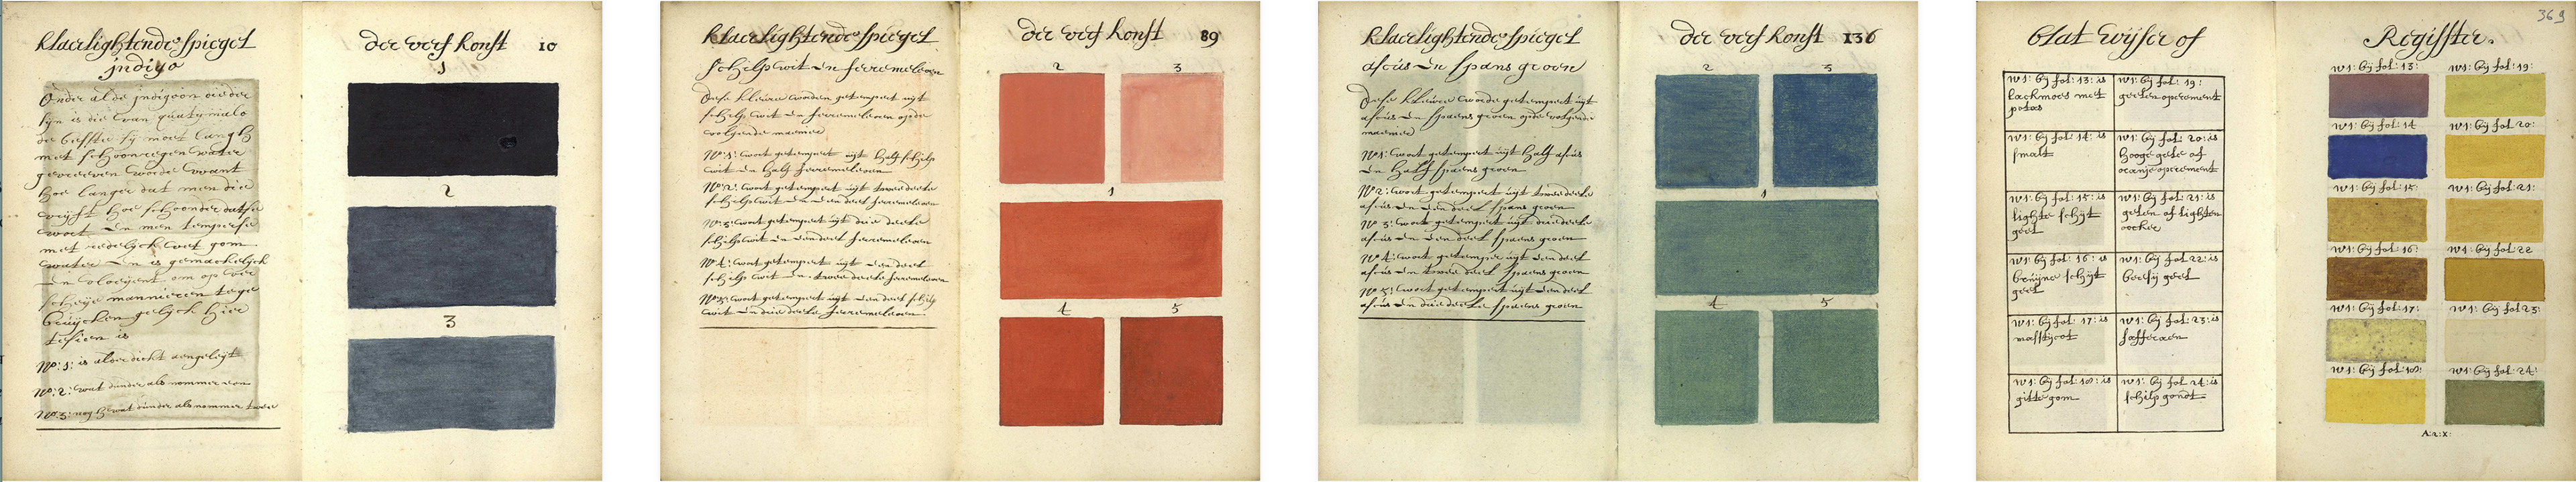 klaerlightende Spiegel
jndigo
Onder al de jndigoon die der
sÿn is die van quatymalo
de besste sÿ moet langh
met schoon regen water
gevreven worde want
hoe langer dat men die
vrÿft hoe schoonder datse
wort en men temperse
met redelyck vet gom
water en is gemackelyck
en vloeÿent om op vier
mannieren te ge
bruÿcken gelÿck hier
te sien is
No: 1: is alder dickt aengeleÿt
No: 2: wat dunder als nommer een
No: 3: nog wat dunder als nommer twee
der verf konst 10
1
2
3
klaerlightende Spiegel
schilp wit en ferremelioen
Dese kleure worden getempert uÿt
schilp wit en ferremelioen op de
volgende manier
No: 1: wort getempert uÿt half schilp
wit en half ferremelioen
No: 2: wort getempert uÿt twee deele
schilp wit en een deel ferremelioen
No: 3: wort getempert uÿt drie deele
schilp wit en een deel ferremelioen
No: 4: wort getempert uÿt een deel
schilp wit en twee deele ferremelioen
No: 5: wort getempert uÿt een deel schilp
wit en drie deele ferremelioen
der verf konst 89
2 3
1
4 5
klaerlightende Spiegel
ascús en spans groen
Dese kleure worde getempert uÿt
ascús en spaens groen op de volgende
manier
No 1: wort getempert uÿt half ascús
en half spaens groen
No 2: wort getempert uÿt twee deele
ascús en een deel spans groen
No 3: wort getempert uÿt drie deele
ascús en een deel spaens groen
No 4: wort getemper uÿt een deel
ascús en twee deel spaens groen
No 5: wort getempert uÿt een deel
ascús en drie deele spaens groen
der verf konst 136
2 3
1
4 5
blat wÿser of
No 1: bÿ fol: 13: is
lackmoes met
potas
No 1: bÿ fol: 19:
geelen operement
No 1: bÿ fol: 14: is
smalt
No 1: bÿ fol: 20: is
hooge gele of
oranje operement
No 1: bÿ fol: 15: is
lighte schÿt
geel
No 1: bÿ fol: 21: is
gelen of lighten
oocker
No 1: bÿ fol: 16: is
bruÿne schÿt
geel
No 1: bÿ fol 22: is
beesÿ geel
No 1: bÿ fol: 17: is
massticot
No 1: bÿ fol: 23: is
safferaen
No 1: bÿ fol: 18: is
gitte gom
No 1: bÿ fol 24: is
schilp goudt
369
Regisster.
No 1: bÿ fol: 13: No 1: bÿ fol: 19:
No 1: bÿ fol: 14 No 1: bÿ fol 20:
No 1: bÿ fol: 15: No 1: bÿ fol: 21:
No 1: bÿ fol: 16: No 1: bÿ fol: 22
No 1: bÿ fol: 17: No 1: bÿ fol 23:
No 1: bÿ fol: 18: No 1: bÿ fol: 24:
A:2:X: